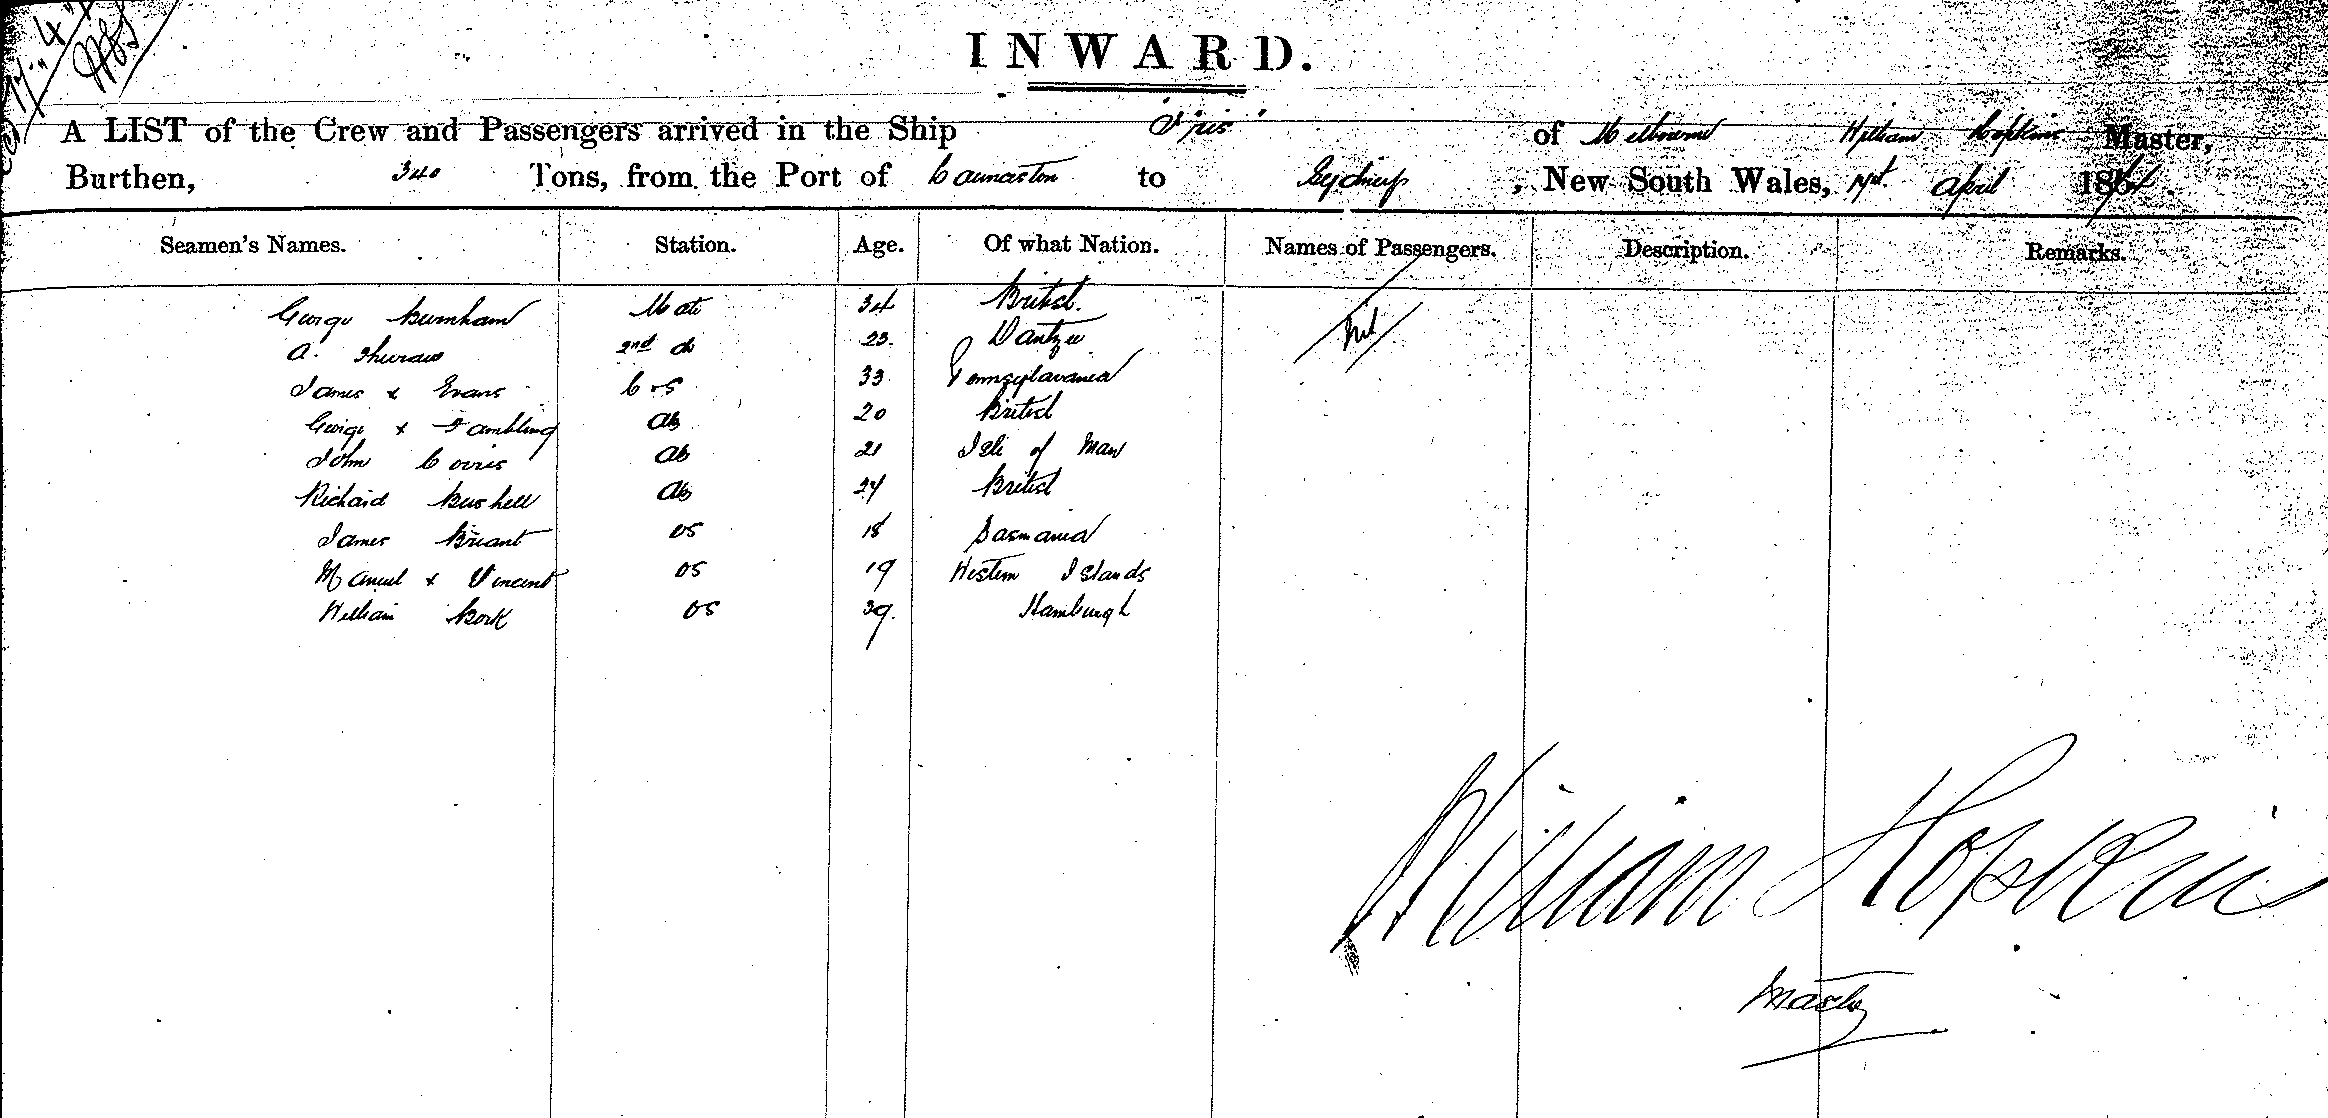 INWARD.
A LIST of the Crew and Passengers arrived in the Ship "Iris" of Melbourne William Hopkins Master,
Burthen, 340 Tons, from the Port of Launceston to Sydney, New South Wales, April 18
Seamen's Names. Station. Age. Of what Nation. Names of Passengers. Description. Remarks.
George Burnham Mate 34 British Nil
A. 2nd do 23 Dantzic
James x Evans 33 Pennsylavania
George x Tambling AB 20 British
John Corris AB 21 Isle of Man
Richard Bushell AB 24 British
James Briant OS 18 Tasmania
Manuel x Vincent OS 19 Western Islands
William Bork OS 39. Hamburgh
William Hopkins
Master